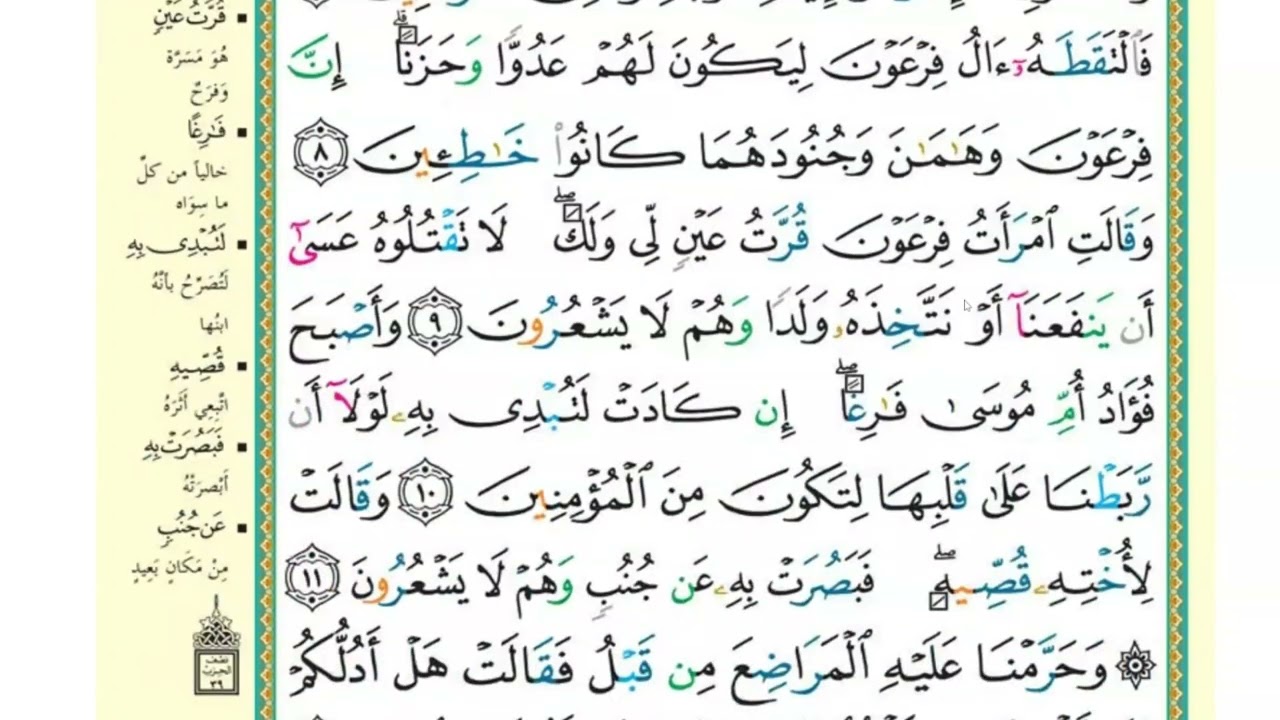 فَٱلْتَقَطَهُۥٓ ءَالُ فِرْعَوْنَ لِيَكُونَ لَهُمْ عَدُوًّا وَحَزَنًا ۗ إِنَّ
فِرْعَوْنَ وَهَٰمَٰنَ وَجُنُودَهُمَا كَانُوا۟ خَٰطِـِٔينَ ٨
وَقَالَتِ ٱمْرَأَتُ فِرْعَوْنَ قُرَّتُ عَيْنٍ لِّى وَلَكَ ۖ لَا تَقْتُلُوهُ عَسَىٰٓ
أَن يَنفَعَنَآ أَوْ نَتَّخِذَهُۥ وَلَدًا وَهُمْ لَا يَشْعُرُونَ ٩ وَأَصْبَحَ
فُؤَادُ أُمِّ مُوسَىٰ فَٰرِغًا ۖ إِن كَادَتْ لَتُبْدِى بِهِۦ لَوْلَآ أَن
رَّبَطْنَا عَلَىٰ قَلْبِهَا لِتَكُونَ مِنَ ٱلْمُؤْمِنِينَ ١٠ وَقَالَتْ
لِأُخْتِهِۦ قُصِّيهِ ۖ فَبَصُرَتْ بِهِۦ عَن جُنُبٍ وَهُمْ لَا يَشْعُرُونَ ١١
۞ وَحَرَّمْنَا عَلَيْهِ ٱلْمَرَاضِعَ مِن قَبْلُ فَقَالَتْ هَلْ أَدُلُّكُمْ
قُرَّتُ عَيْنٍ
هُوَ مَسَرَّةٌ
وَفَرَحٌ
فَٰرِغًا
خالياً من كلّ
ما سِوَاه
لَتُبْدِى بِهِ
لَتُصَرِّحُ بأنَّهُ
ابنُها
قُصِّيهِ
اتْبِعِي أَثَرَهُ
فَبَصُرَتْ بِهِ
أَبْصَرَتْهُ
عَن جُنُبٍ
مِنْ مَكَانٍ بَعِيدٍ
نصف
الحزب
٣٩